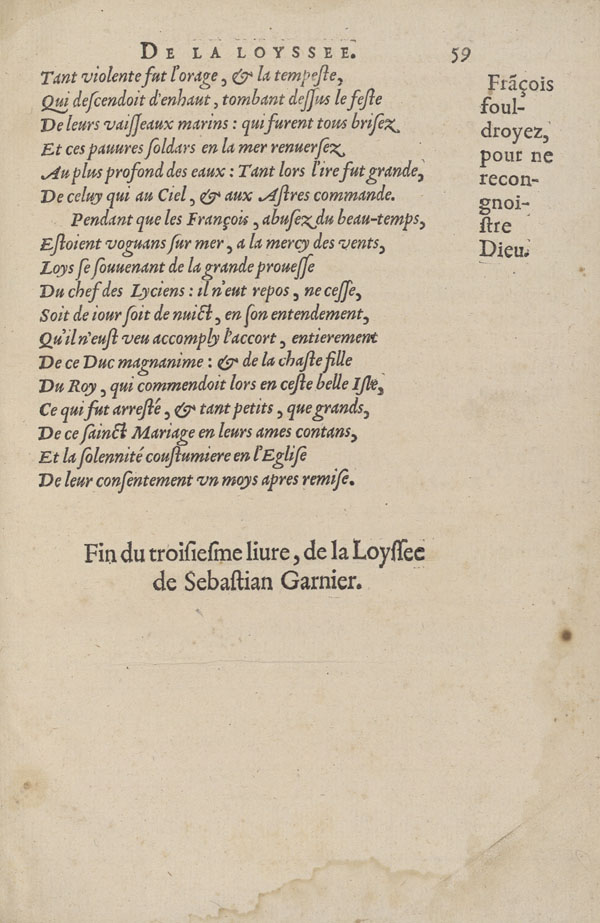 DE LA LOYSSEE. 59
Tant violente fut l'orage, & la tempeſte,
Qui deſcendoit d'enhaut, tombant deſſus le feſte
De leurs vaiſſeaux marins : qui furent tous briſez
Et ces pauures ſoldars en la mer renuerſez
Au plus profond des eaux : Tant lors l'ire fut grande,
De celuy qui au Ciel, & aux Aſtres commande.
Pendant que les François, abuſez du beau-temps,
Eſtoient voguans ſur mer, a la mercy des vents,
Loys ſe ſouuenant de la grande proueſſe
Du chef des Lyciens : il n'eut repos, ne ceſſe,
Soit de iour ſoit de nuict, en ſon entendement,
Qu'il n'euſt veu accomply l'accort, entierement
De ce Duc magnanime : & de la chaſte fille
Du Roy, qui commendoit lors en ceſte belle Iſle,
Ce qui fut arreſté, & tant petits, que grands,
De ce ſainct Mariage en leurs ames contans,
Et la ſolennité couſtumiere en l'Egliſe
De leur conſentement vn moys apres remiſe.
Frãçois
foul-
droyez,
pour ne
recon-
gnoi-
ſtre
Dieu.
Fin du troiſieſme liure, de la Loyſſee
de Sebaſtian Garnier.